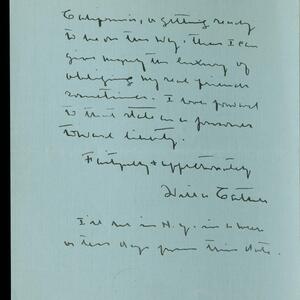 California, or getting ready
to be on the way. Then I can
give myself the luxury of
obliging my real friends
sometimes. I look forward
to that state as a prisoner
toward liberty.
Faithfully & affectionately
Willa Cather
I'll be in N.Y. in a week
or ten days from this date.